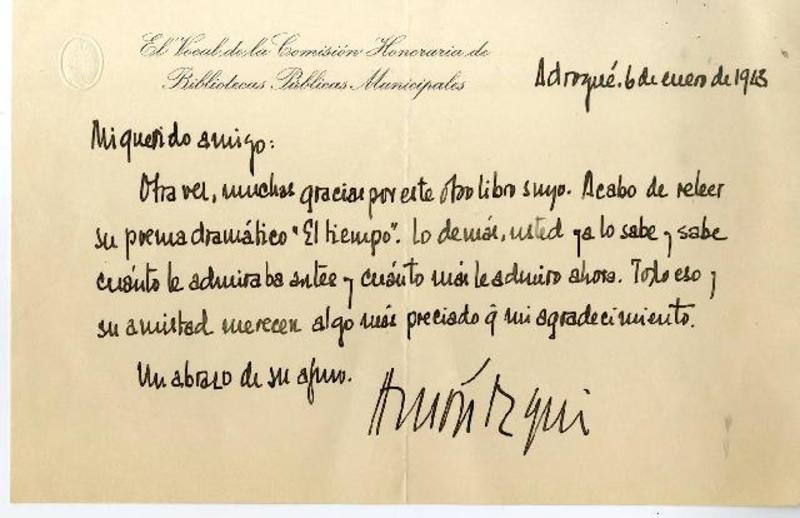 El Vocal de la Comisión Honoraria de
Bibliotecas Públicas Municipales
Adrogué. 6 de enero de 1943
Mi querido amigo:
Otra vez, muchas gracias por este otro libro suyo. Acabo de releer
su poema dramático "El tiempo". Lo demás, usted ya lo sabe y sabe
cuánto le admiraba antes y cuánto más le admiro ahora. Todo eso y
su amistad merecen algo más preciado q̃ mi agradecimiento.
Un abrazo de su afmo.